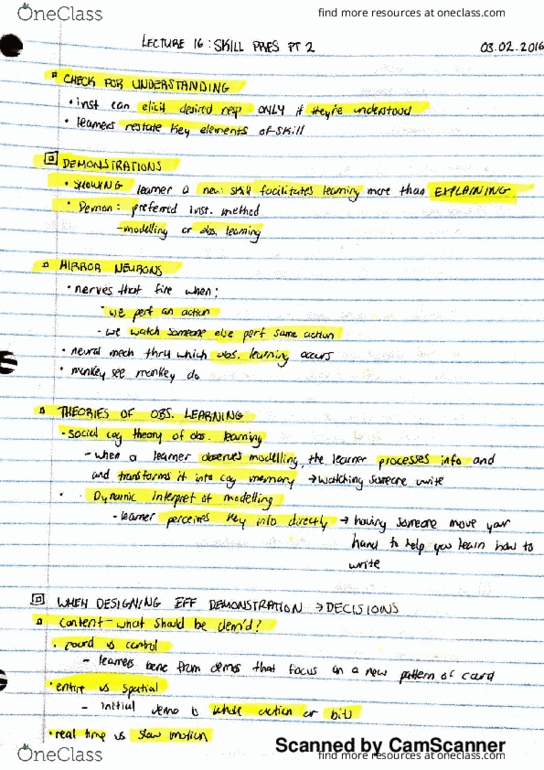 OneClass
find more resources at oneclass.com
LECTURE 16: SKILL PRES PT 2
03.02.2016
CHECK FOR UNDERSTANDING
• inst can elicit desired resp ONLY if they're understood
• learners restate key elements of skill
DEMONSTRATIONS
• SHOWING learner a new skill facilitates learning more than EXPLAINING
• Demon: preferred inst. method
- modelling or obs. learning
MIRROR NEURONS
• nerves that fire when:
- we perf an action
- we watch someone else perf same action
• neural mech thru which obs. learning occurs
• monkey see monkey do
THEORIES OF OBS. LEARNING
• social cog theory of obs. learning
- when a learner observes modelling, the learner processes info and
and transforms it into cog memory → watching someone write
• Dynamic interpret of modelling
- learner perceives key info directly → having someone move your
hand to help you learn how to
write
WHEN DESIGNING EFF DEMONSTRATION → DECISIONS
content - what should be dem'd?
• coord vs control
- learners bene from demos that focus on a new pattern of coord
• entire vs spatial
- initial demo is whole action or bits
• real time vs slow motion
Scanned by CamScanner
OneClass
find more resources at oneclass.com